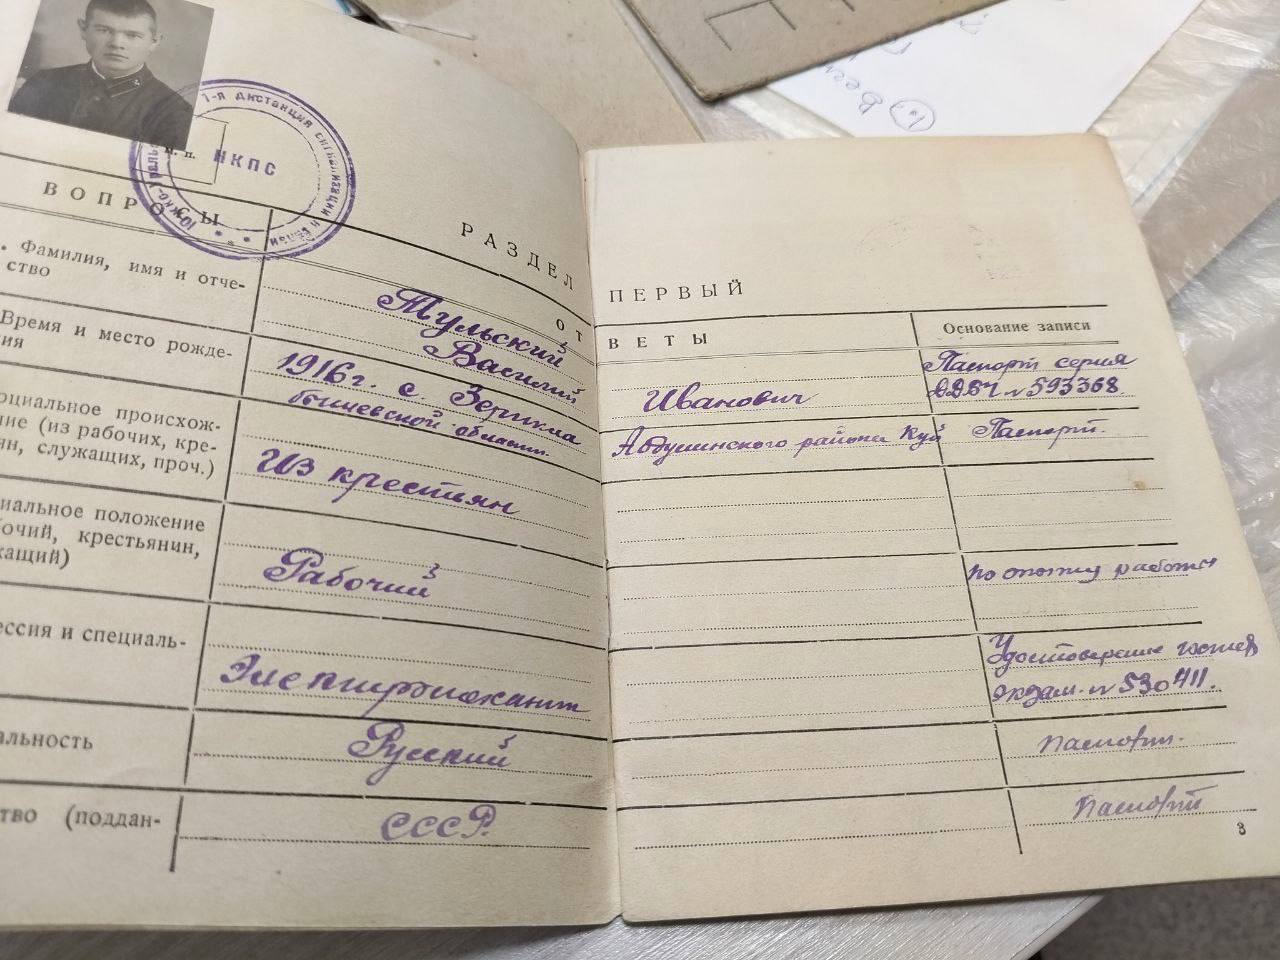 1-я дистанция сигнализации и связи
Южно-Ураль
НКПС
м. п.
ВОПРОСЫ
РАЗДЕЛ ПЕРВЫЙ
ОТВЕТЫ
Основание записи
. Фамилия, имя и отче-
ство
Тульский
Василий Иванович
Паспорт серия
№ 593368
Время и место рожде-
ния
1916 г. с. Зерикла Абдулинского района Куй
бышевской области.
Паспорт.
оциальное происхож-
ние (из рабочих, кре-
ян, служащих, проч.)
Из крестиян
иальное положение
бочий, крестьянин,
жащий)
Рабочий
по опыту работы
ессия и специаль-
Удостоверение
экзам. № 530411.
альность
Русский
Паспорт.
тво (поддан-
СССР.
Паспорт
3